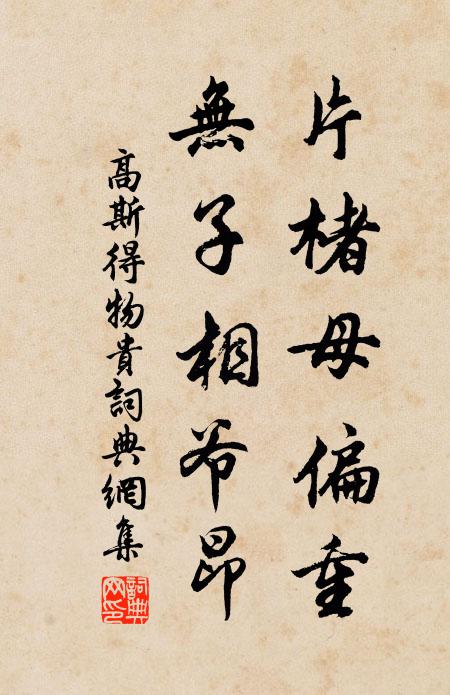 片楮母偏重
無子相爷昂
高斯得物貴詞典網集
詞典
网印